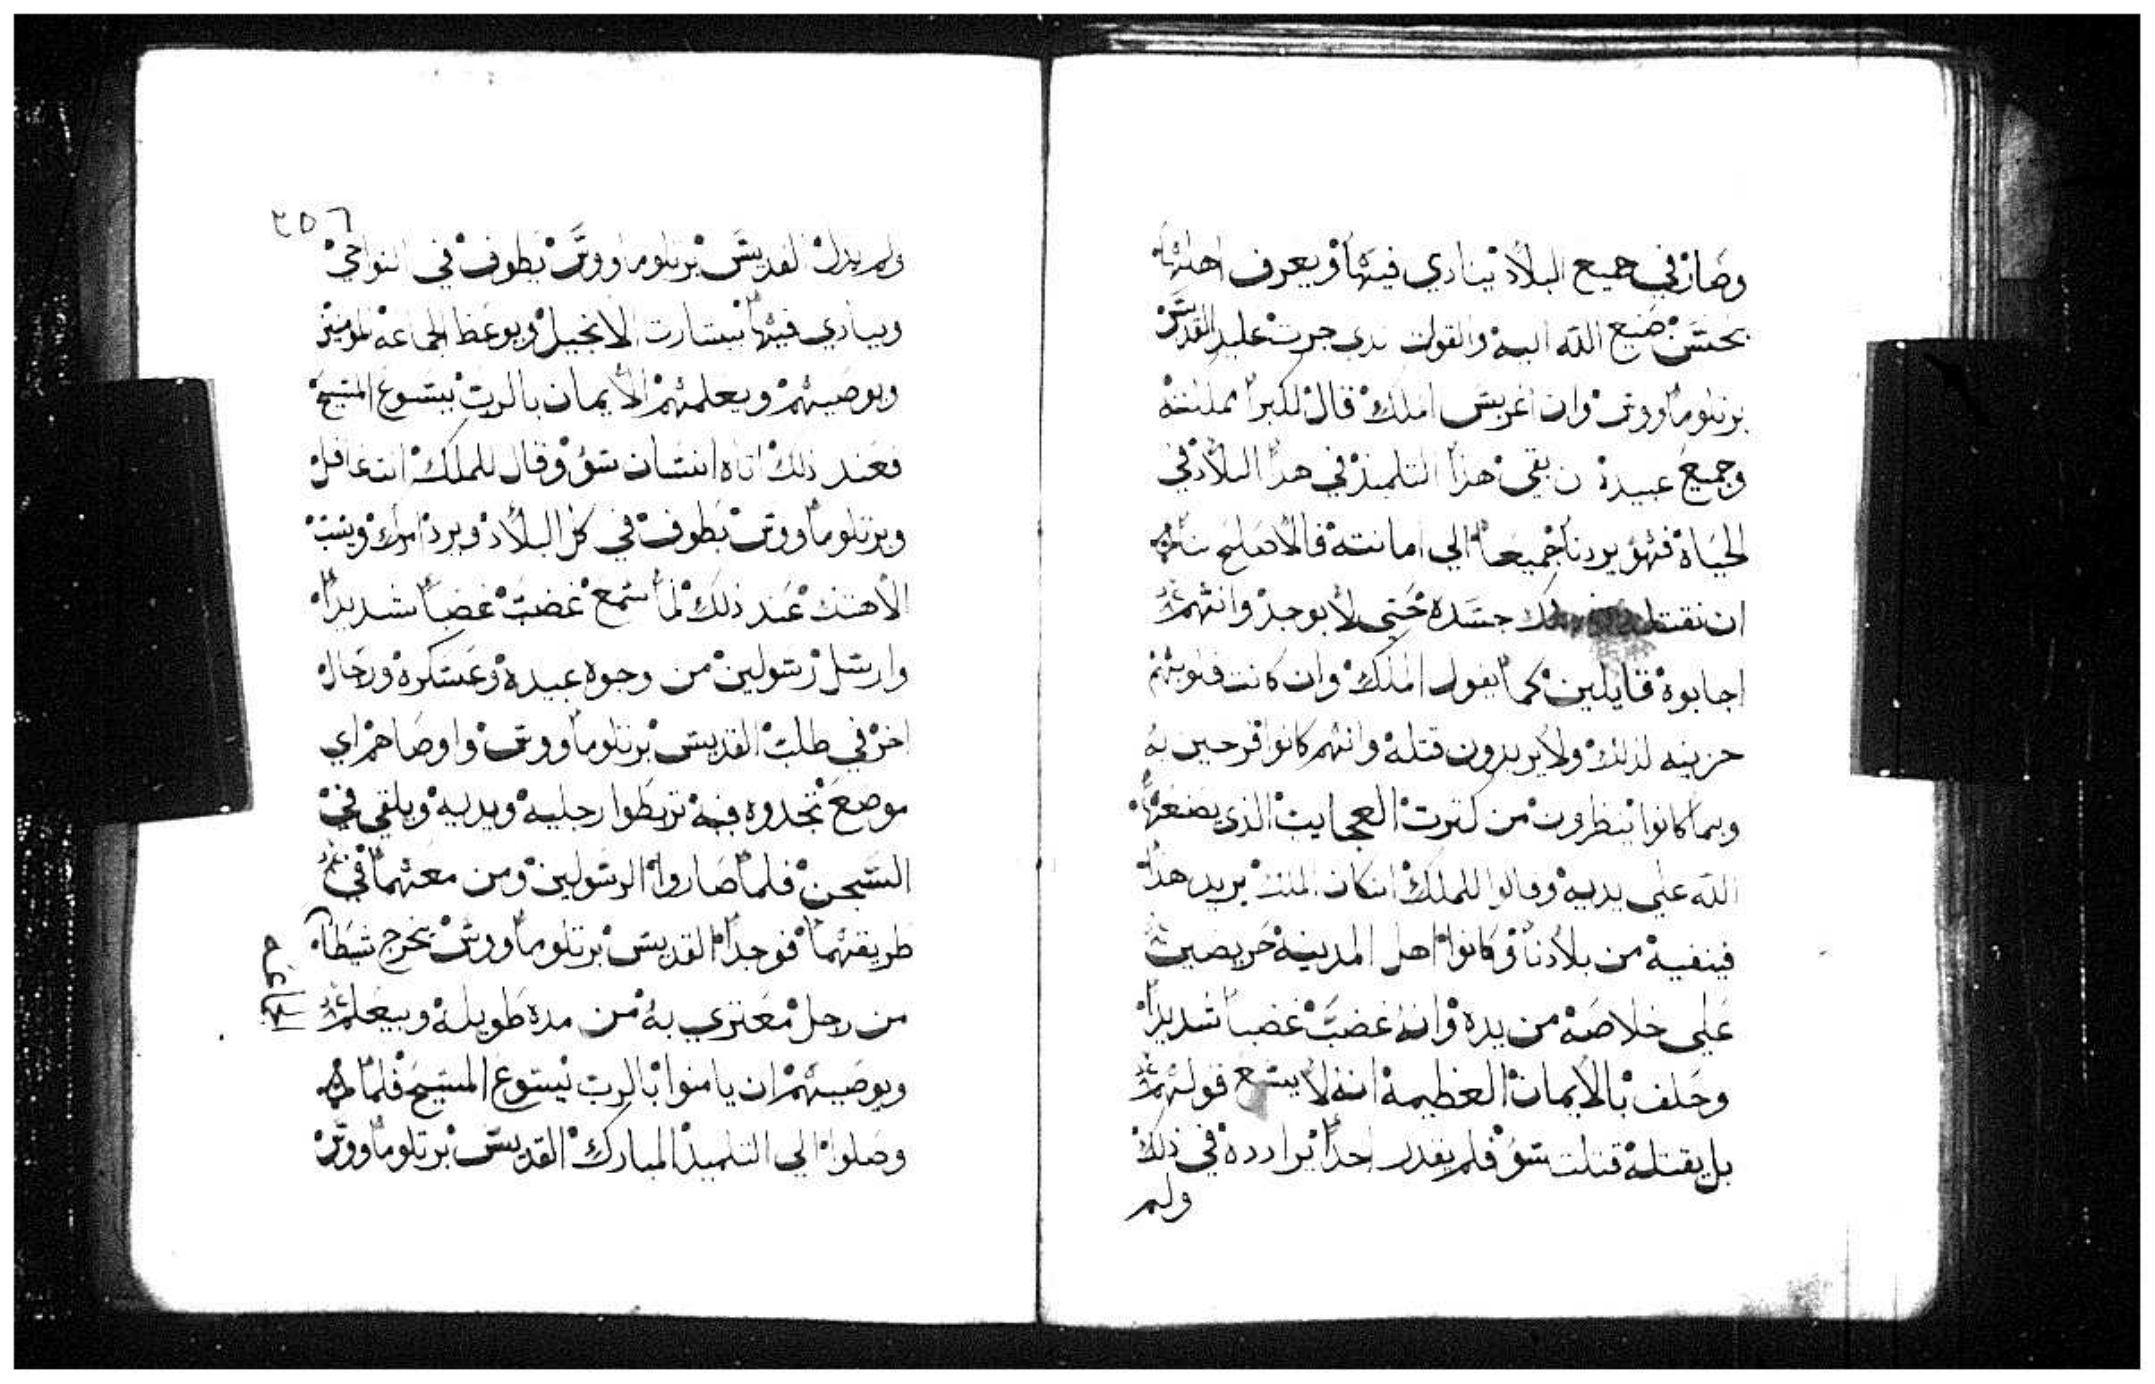 وصار في جميع البلاد ينادي فيها ويعرف اهلها
بحسن صنيع الله اليه والقوات جرت على القديس
برتلوماووس وان اغريبس الملك قال لكبرا مملكته
وجميع عبيده ان بقي هذا التلميذ في هذا البلاد في
الحياة فهو يردنا جميعا الي امانته فالاصلح
ان نقتله جسده حتي لا يوجد وانهم
اجابوه قايلين كما يقول الملك وان كانت قلوبهم
حزينه لذلك ولا يريدون قتله وانهم كانوا فرحين به
وبما كانوا ينظرون من كترت العجايب الذي يصنعها
الله علي يديه وقالوا للملك انكان الملك يريد هذا
فينفيه من بلادنا وكانوا اهل المدينه حريصين
علي خلاصه من يده وانه غضب غضبا شديدا
وحلف بالايمان العظيمه انه لا يسمع قولهم
بل يقتله قتلت سو فلم يقدر احدا يرادده في ذلك
ولم
٢٥٦
ولم يزل القديس برتلوماووس يطوف في النواحي
وينادي فيها ببشارت الانجيل ويوعظ الجماعه المومنين
ويوصيهم ويعلمهم الايمان بالرب يسوع المسيح
فعند ذلك اتاه انسان سو وقال للملك انت غافل
وبرتلوماووس يطوف في كل البلاد ويرد امرك ويسب
الاهتك عند ذلك لما سمع غضب غضبا شديدا
وارسل رسولين من وجوه عبيده وعسكره ورجال
اخر في طلب القديس برتلوماووس واوصاهم اي
موضع تجدوه فيه تربطوا رجليه ويديه ويلقي في
السجن فلما صاروا الرسولين ومن معهما في
طريقهما فوجدا القديس برتلوماووس يخرج شيطان
من رجل معتري به من مده طويله ويعلمهم
ويوصيهم ان يامنوا بالرب يسوع المسيح فلما
وصلوا الي التلميذ المبارك القديس برتلوماووس